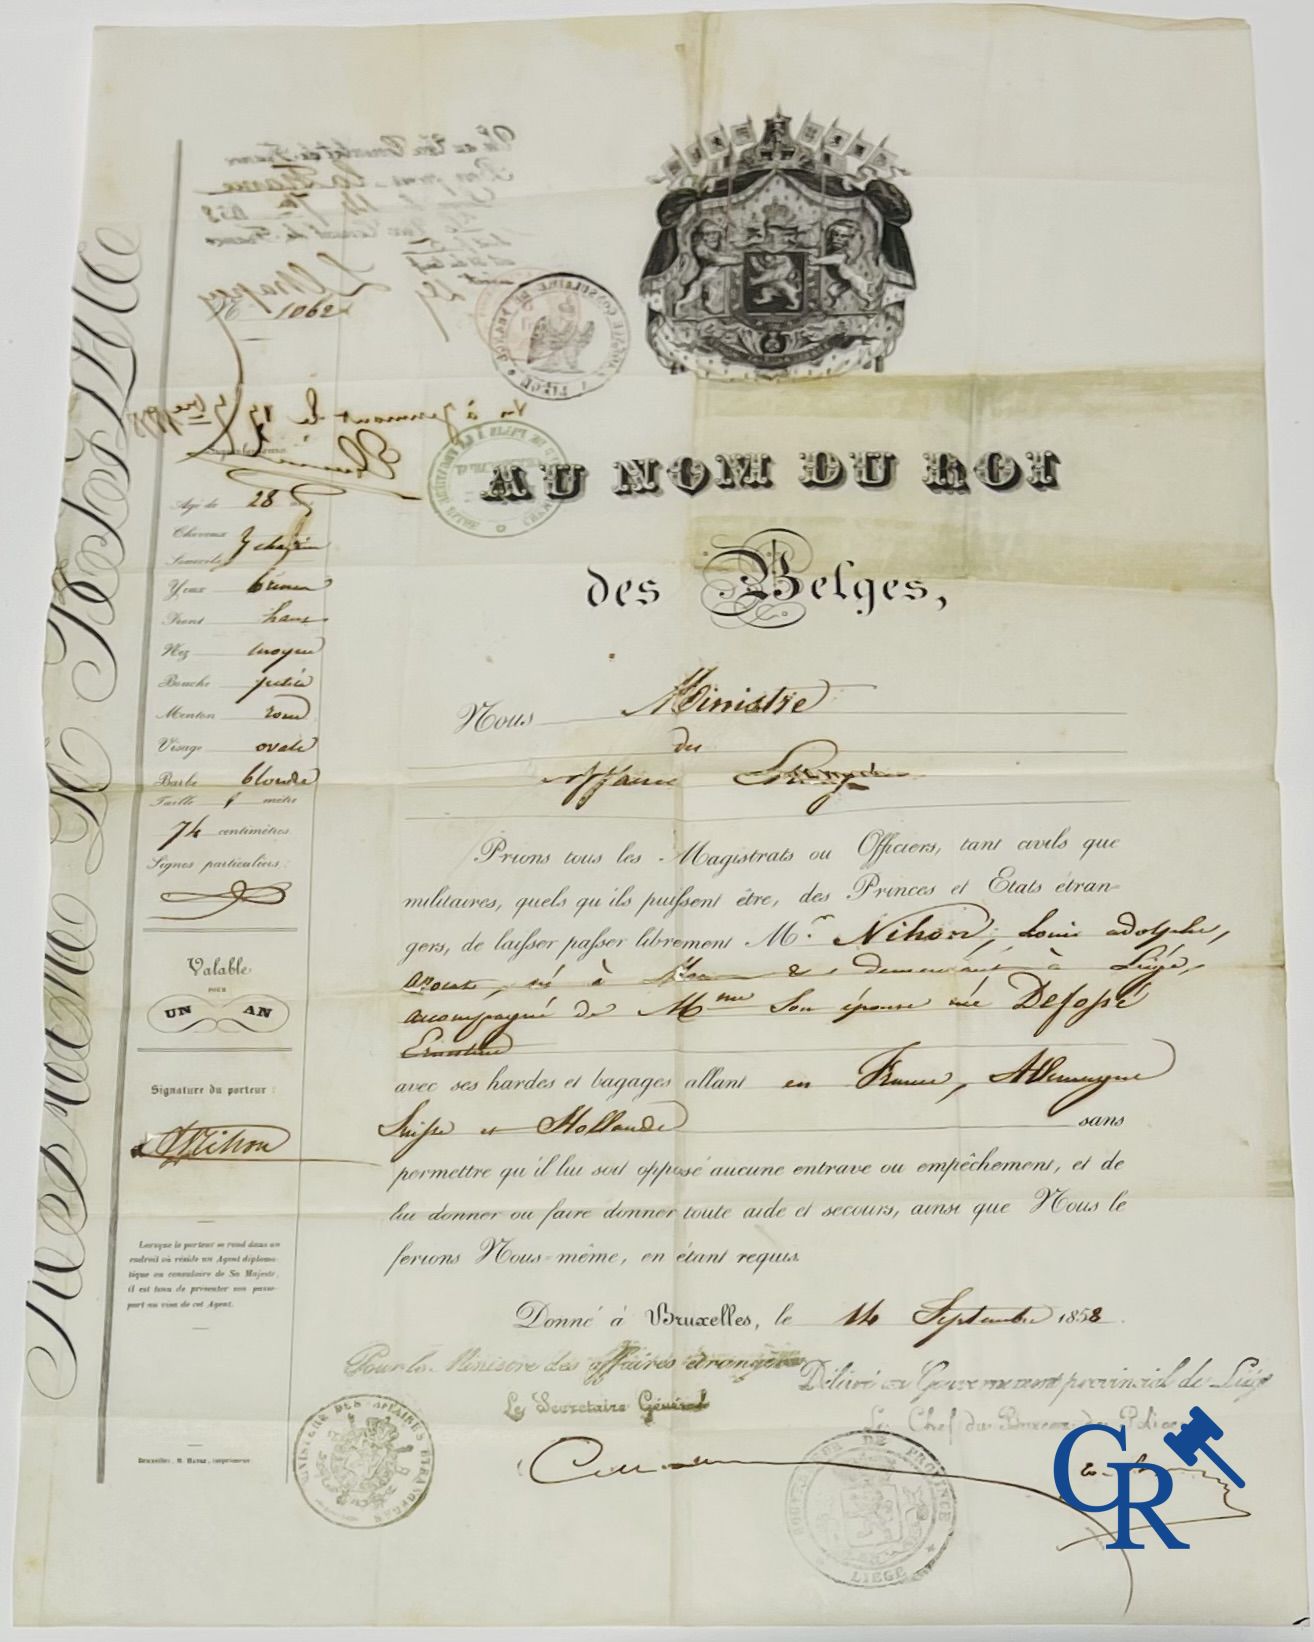 ROYAUME DE BELGIQUE
1062
Agé de 28 ans
Cheveux
Sourcils } chatain
Yeux bruns
Front haut
Nez moyen
Bouche petite
Menton rond
Visage ovale
Barbe blonde
Taille 1 mètre
74 centimètres
Signes particuliers:
Valable
POUR
UN AN
Signature du porteur:
Nihon
Lorsque le porteur se rend dans un
endroit où réside un Agent diploma-
tique ou consulaire de Sa Majesté,
il est tenu de présenter son passe-
port au visa de cet Agent.
AU NOM DU ROI
des Belges,
Nous Ministre
des
Affaires Etrangères
Prions tous les Magistrats ou Officiers, tant civils que
militaires, quels qu'ils puissent être, des Princes et Etats étran-
gers, de laisser passer librement Mr. Nihon, Louis adolphe,
avocat, né à & demeurant à Liège,
accompagné de Mme son épouse née Defossé
Ernestine
avec ses hardes et bagages allant en France, Allemagne
Suisse et Hollande sans
permettre qu'il lui soit opposé aucune entrave ou empêchement, et de
lui donner ou faire donner toute aide et secours, ainsi que Nous le
ferions Nous-même, en étant requis.
Donné à Bruxelles, le 14 Septembre 1858.
Pour le Ministre des affaires étrangères
Le Secrétaire Général
Délivré au Gouvernement provincial de Liége
Le Chef du Bureau de Police
MINISTRE DES AFFAIRES ETRANGERES
LIEGE
CR